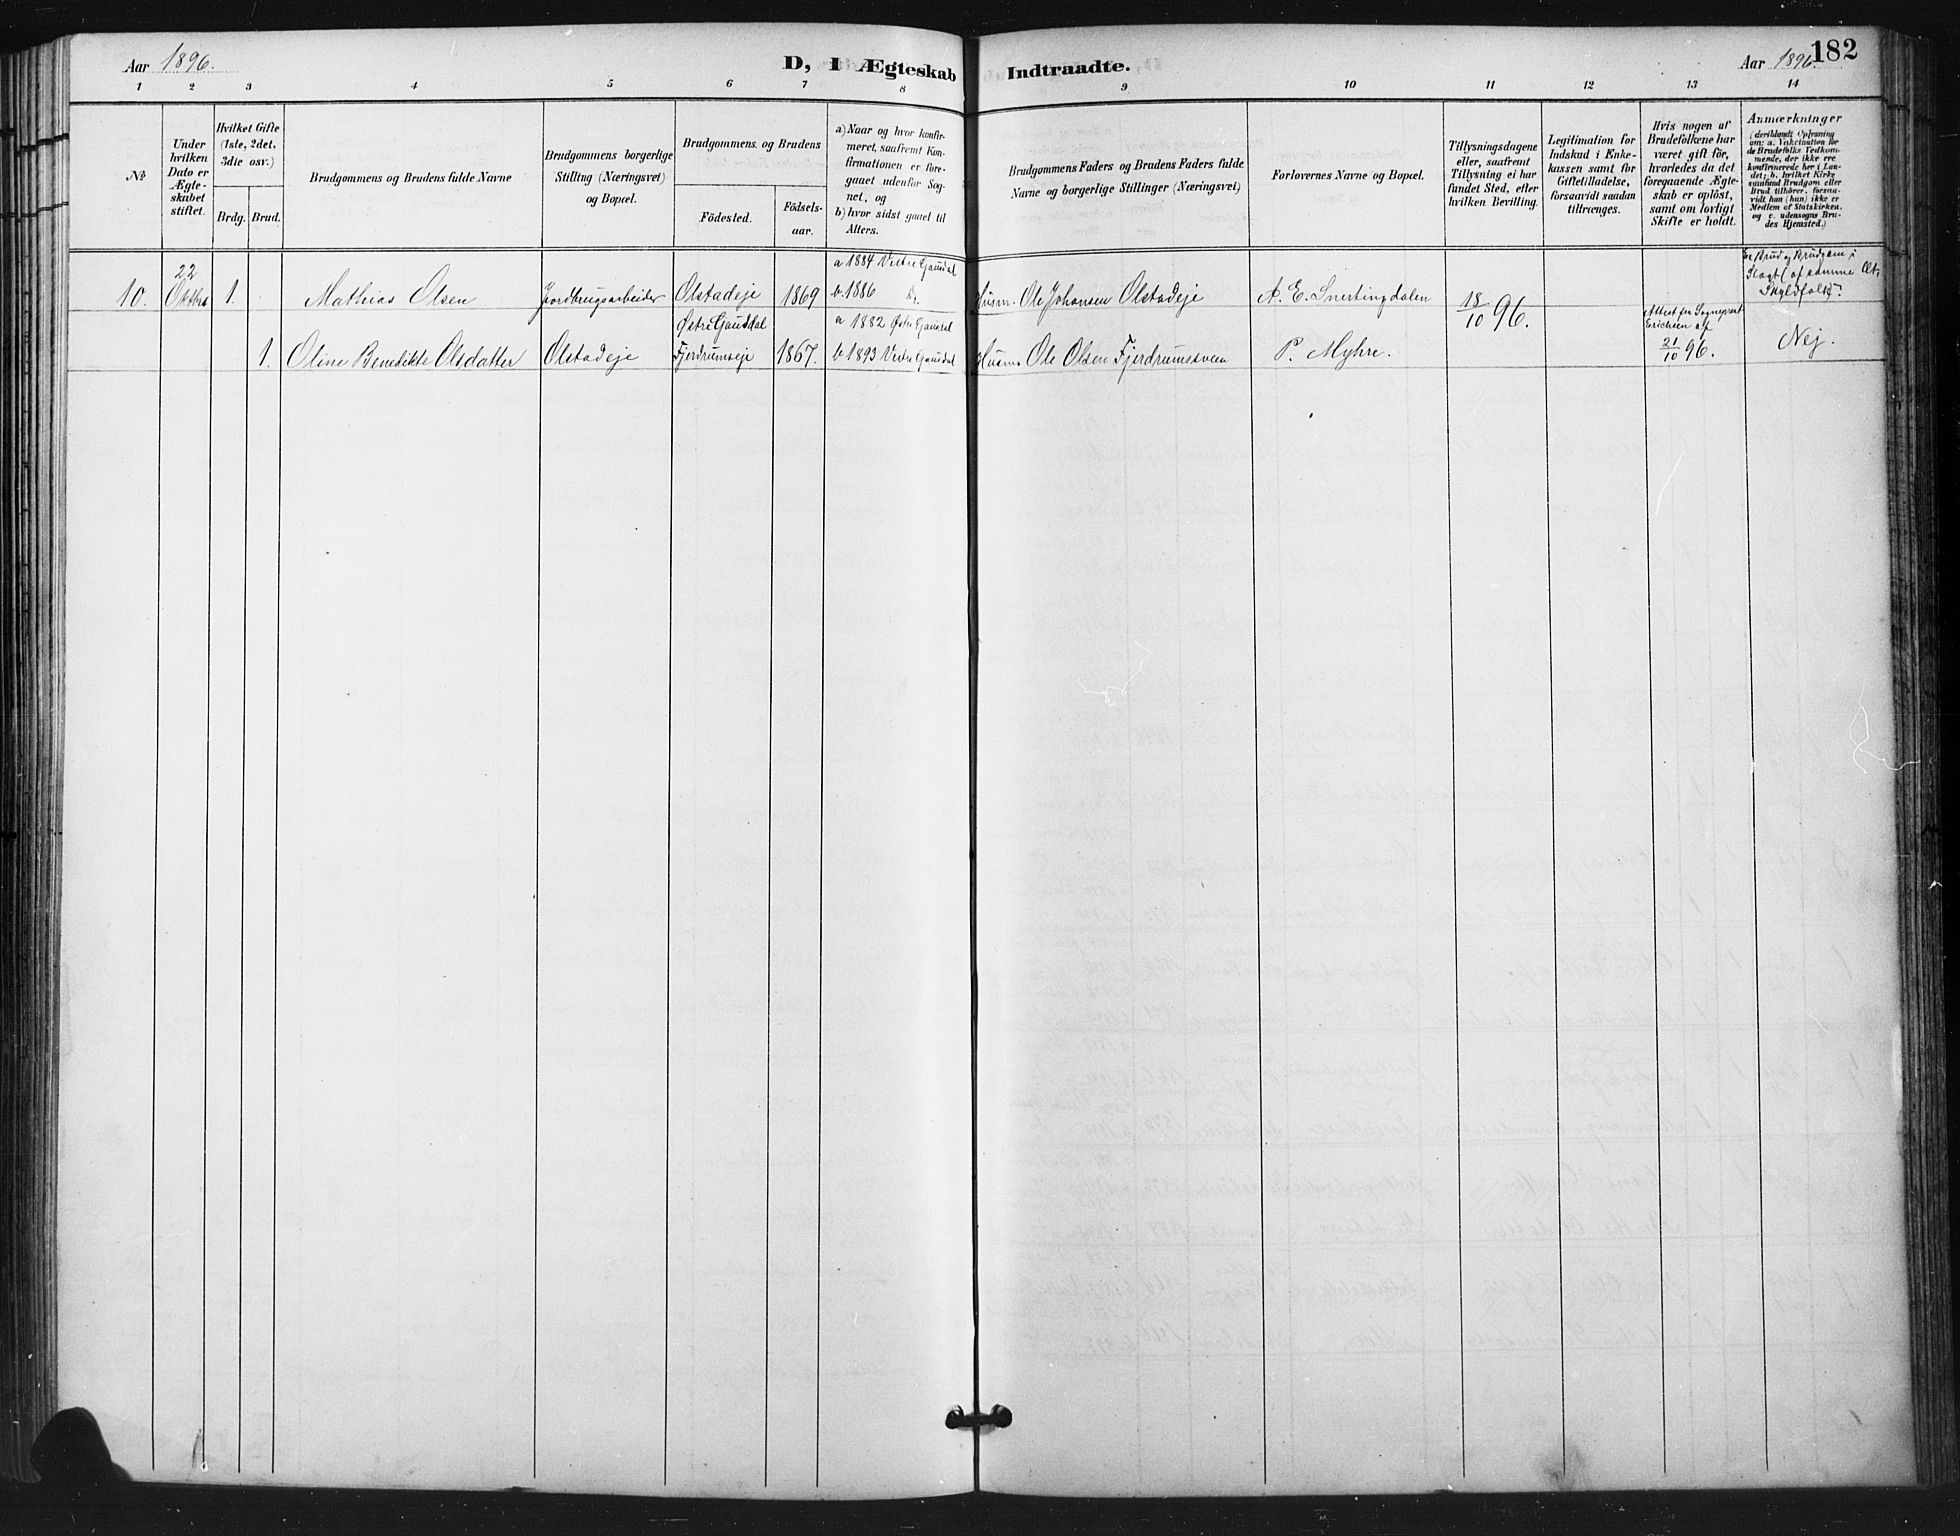 Aar 1896.
D, I Ægteskab Indtraadte.
Aar 1896.
182
1 2 3 4 5 6 7 8 9 10 11 12 13 14
No
Under hvilken Dato er Ægteskabet stiftet.
Hvilket Gifte (1ste, 2det, 3die osv.)
Brdg. Brud.
Brudgommens og Brudens fulde Navne
Brudgommens borgerlige Stilling (Næringsvei) og Bopæl.
Brudgommens og Brudens
Födested.
Födselsaar.
a) Naar og hvor konfirmeret, saafremt Konfirmationen er foregaaet udenfor Sognet, og
b) hvor sidst gaaet til Alters.
Brudgommens Faders og Brudens Faders fulde Navne og borgerlige Stillinger (Næringsvei)
Forlovernes Navne og Bopæl.
Tillysningsdagene eller, saafremt Tillysning ei har fundet Sted, efter hvilken Bevilling.
Legitimation for Indskud i Ænkekassen samt for Giftetilladelse, forsaavidt saadan tiltrænges.
Hvis nogen af Brudefolkene har været gift för, hvorledes da det foregaaende Ægteskab er oplöst, samt om lovligt Skifte er holdt.
Anmærkninger
(deriblandt Oplysning om: a. Vakcination för de Brudefolks Vedkommende, der ikke ere konfirmerede her i Landet; b. hvilket Kirkesamfund Brudgom eller Brud tilhörer, forsaavidt han (hun) ikke er Medlem af Statskirken, og c. udensogns Brudes Hjemsted.)
10. 22 Oktbr 1. Mathias Olsen Jordbrugsarbeider Olstadeje 1869 a 1884 Vestre Gausdal b 1886 Do. Husm. Ole Johansen Olstadeje A. E. Snertingdalen 18/10 96. Er Brud og Brudgom i Slægt (af samme Æt, Skyldfolk)?
1. Oline Benedikte Olsdatter Olstadeje Østre Gausdal Fjerdrumseje 1867. a 1882 Østre Gausdal b 1893 Vestre Gausdal Husm. Ole Olsen Fjerdrumsveen P. Myhre. Attest fra Sogneprest Erichsen af 21/10 96. Nej.